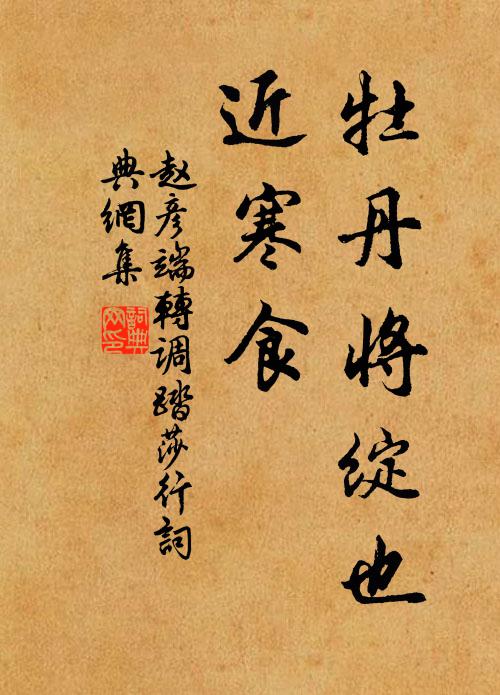 牡丹將綻也
近寒食
赵彥端轉調踏莎行詞
典網集
詞典
网印